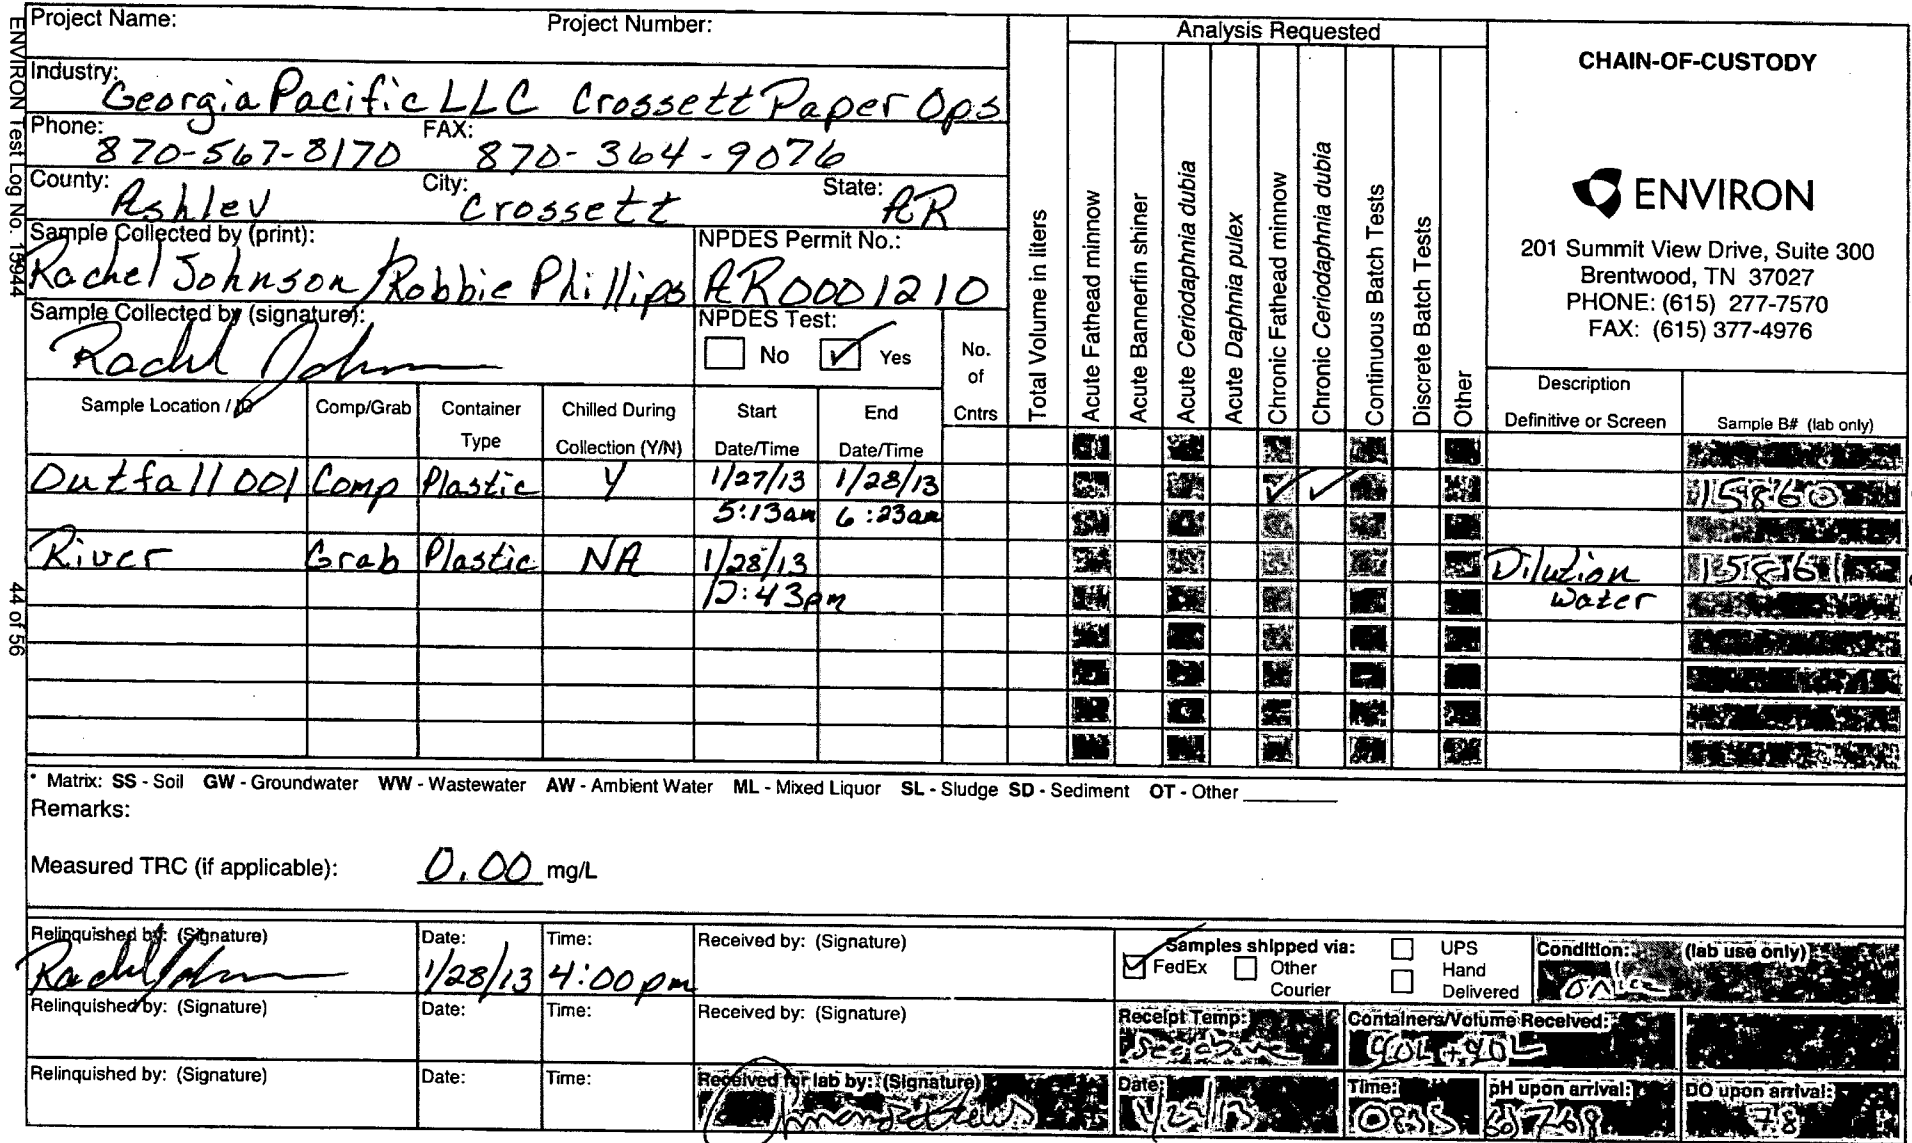 ENVIRON Test Log No. 15944
44 of 56
Project Name: Project Number:
Industry: Georgia Pacific LLC Crossett Paper Ops
Phone: 870-567-8170 FAX: 870-364-9076
County: Ashley City: Crossett State: AR
Sample Collected by (print): Rachel Johnson/Robbie Phillips
NPDES Permit No.: AR0001210
Sample Collected by (signature): Rachel Johnson
NPDES Test: No ✓ Yes
Analysis Requested
CHAIN-OF-CUSTODY
ENVIRON
201 Summit View Drive, Suite 300
Brentwood, TN 37027
PHONE: (615) 277-7570
FAX: (615) 377-4976
Sample Location / ID
Comp/Grab
Container Type
Chilled During Collection (Y/N)
Start Date/Time
End Date/Time
No. of Cntrs
Total Volume in liters
Acute Fathead minnow
Acute Bannerfin shiner
Acute Ceriodaphnia dubia
Acute Daphnia pulex
Chronic Fathead minnow
Chronic Ceriodaphnia dubia
Continuous Batch Tests
Discrete Batch Tests
Other
Description Definitive or Screen
Sample B# (lab only)
Outfall 001 Comp Plastic Y 1/27/13 1/28/13 ✓ ✓ 15860
5:13am 6:23am
River Grab Plastic NA 1/28/13 Dilution 15861
:43pm Water
* Matrix: SS - Soil GW - Groundwater WW - Wastewater AW - Ambient Water ML - Mixed Liquor SL - Sludge SD - Sediment OT - Other
Remarks:
Measured TRC (if applicable): 0.00 mg/L
Relinquished by: (Signature) Rachel Johnson Date: 1/28/13 Time: 4:00pm Received by: (Signature)
Samples shipped via: ✓ FedEx Other Courier UPS Hand Delivered
Condition: (lab use only)
Relinquished by: (Signature) Date: Time: Received by: (Signature)
Receipt Temp: See above
Containers/Volume Received:
Relinquished by: (Signature) Date: Time: Received for lab by: (Signature)
Date: 1/29/13
Time: 0835
pH upon arrival:
DO upon arrival: 7.8